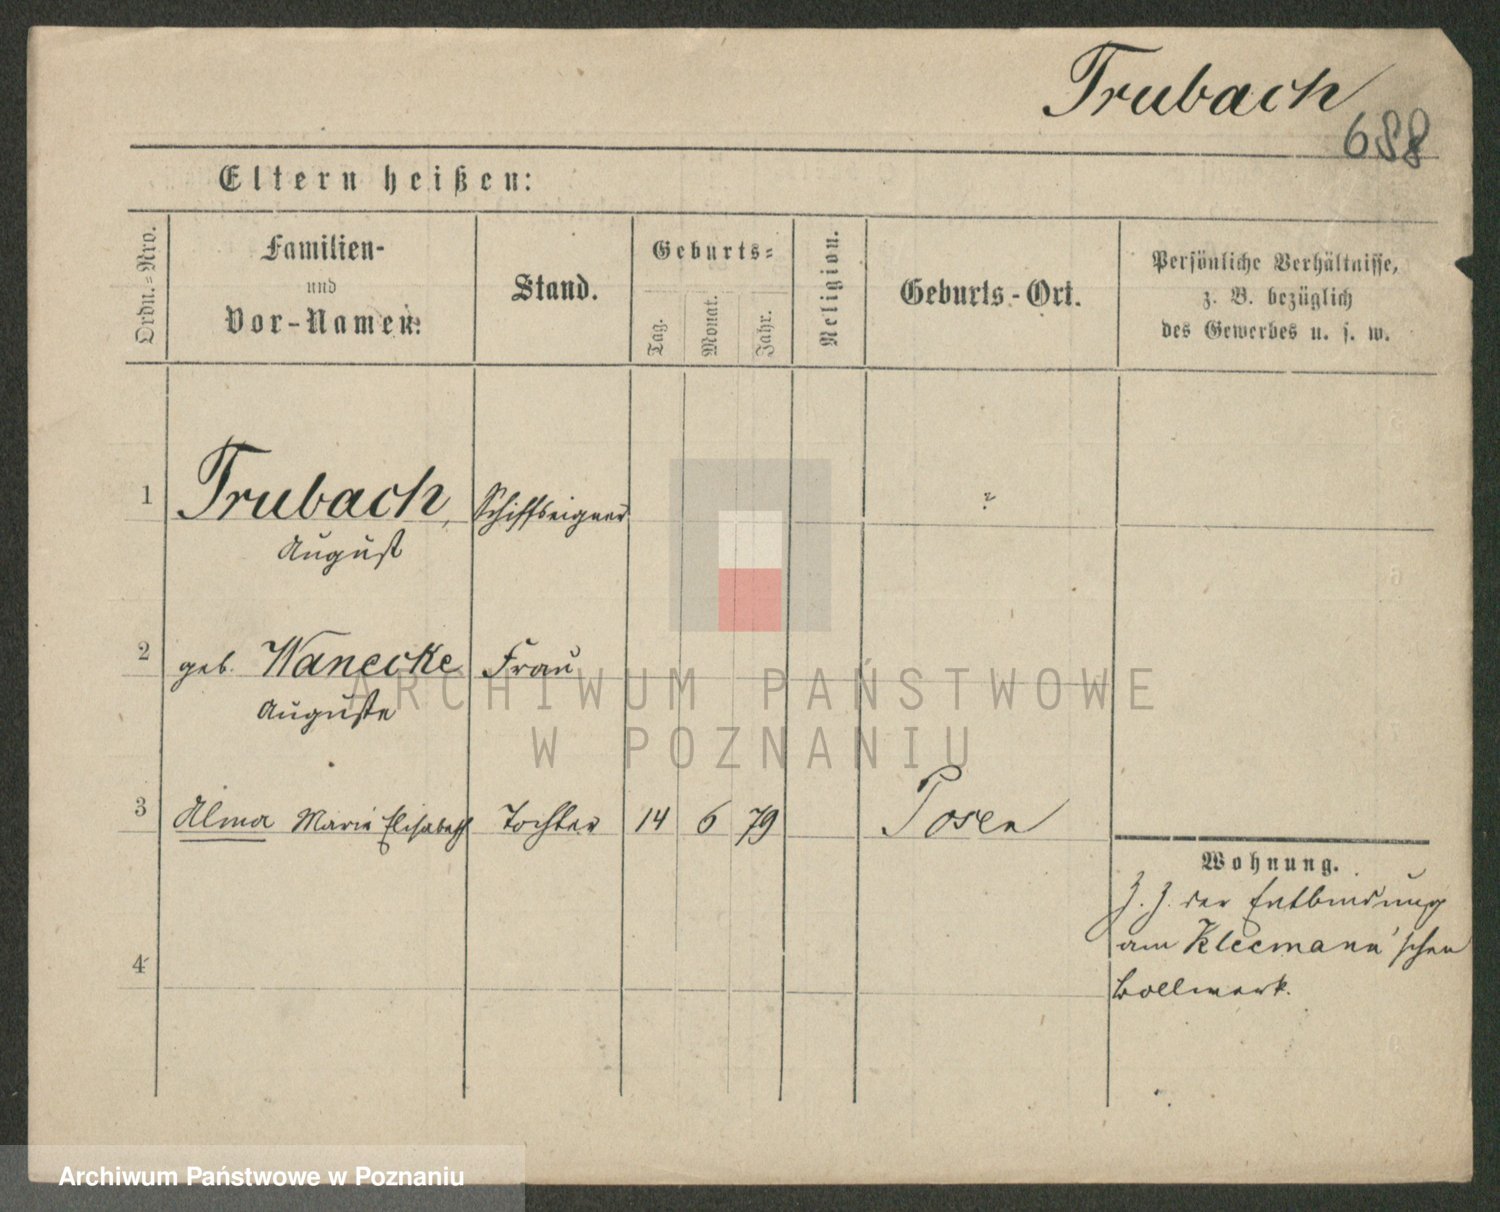 Trubach
688
Eltern heißen:
Ordn.=Nro.
Familien-
und
Vor-Namen:
Stand.
Geburts=
Tag.
Monat.
Jahr.
Religion.
Geburts-Ort.
Persönliche Verhältnisse,
z. B. bezüglich
des Gewerbes u. s. w.
1 Trubach, Schiffseigner ?
August
2 geb. Wanecke Frau
Auguste
3 Alma Marie Elisabeth Tochter 14 6 79 Posen
Wohnung.
Z. Z. der Entbindung
am Kleemann'schen
Bollwerk.
4
ARCHIWUM PAŃSTWOWE
W POZNANIU
Archiwum Państwowe w Poznaniu